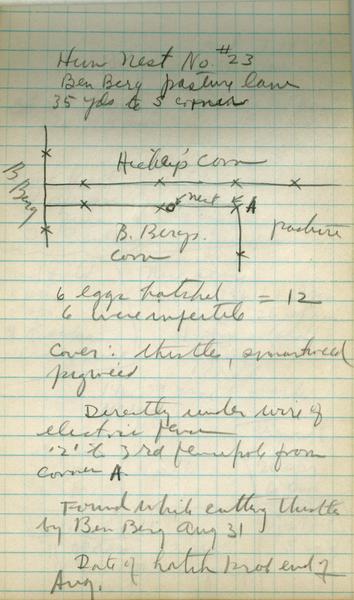 Hun Nest No. #23
Ben Berg pasture lane
35 yds to S corner
Hickey's corn
B Berg
nest
A
B. Bergs.
corn
pasture
6 eggs hatched = 12
6 were infertile
Cover: thistles, smartweed
pigweed
Directly under wire of
electric fence
'2' to 3rd fence pole from
corner A.
Found while cutting thistles
by Ben Berg Aug 31
Date of hatch prob end of
Aug.